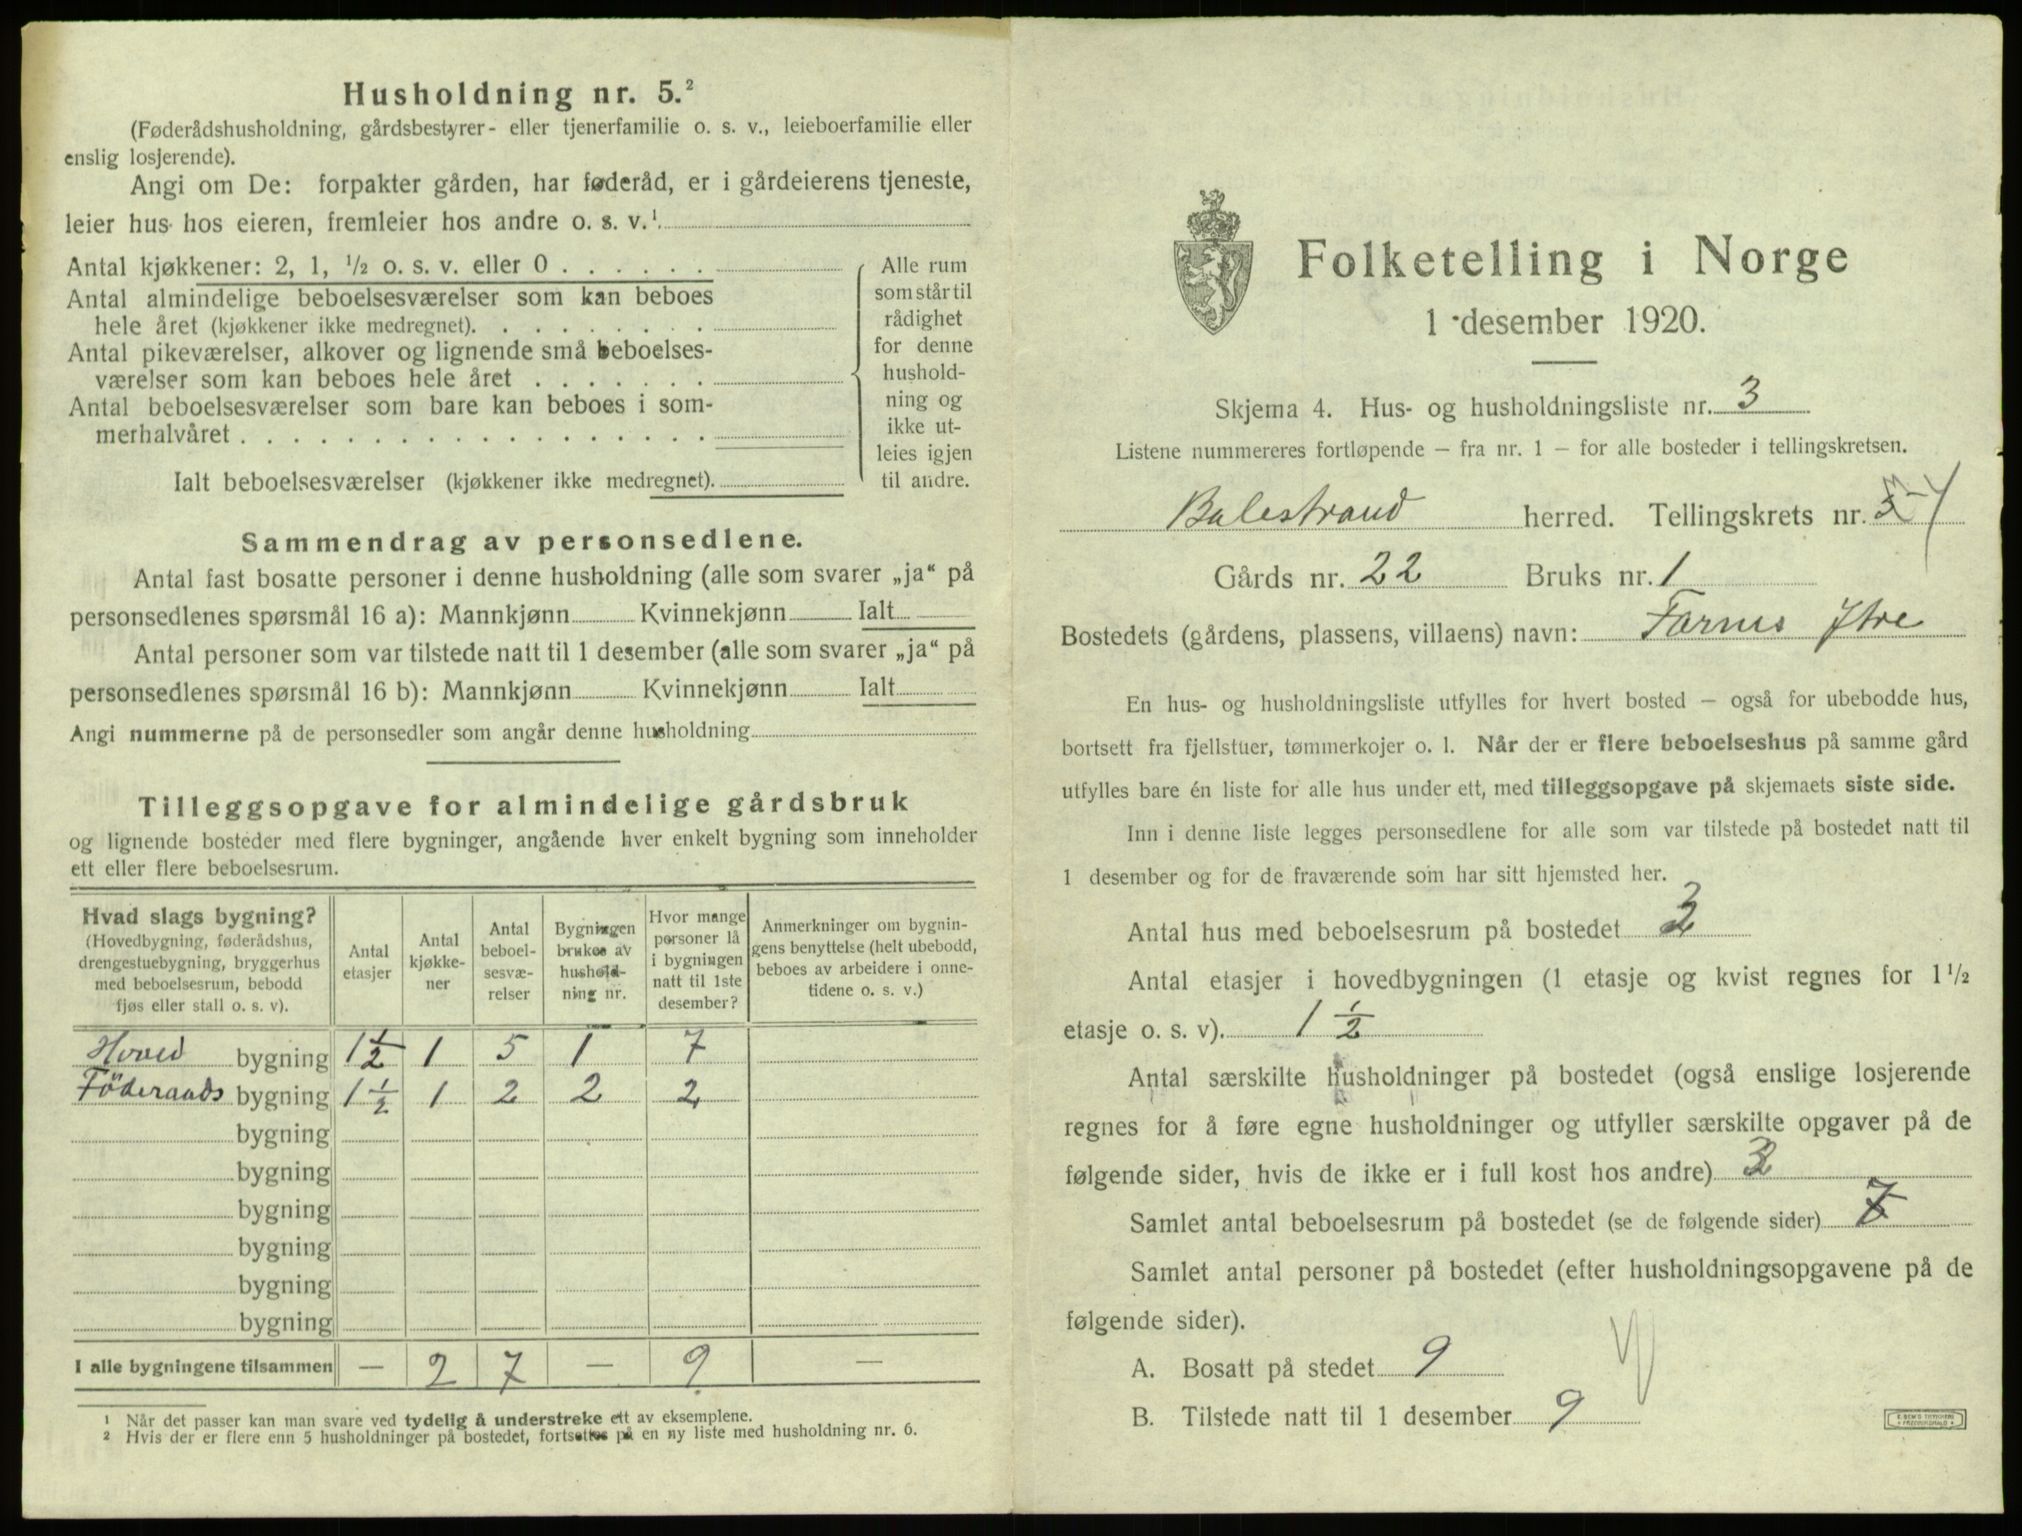 Husholdning nr. 5.²
(Føderådshusholdning, gårdsbestyrer- eller tjenerfamilie o. s. v., leieboerfamilie eller
enslig losjerende).
Angi om De: forpakter gården, har føderåd, er i gårdeierens tjeneste,
leier hus hos eieren, fremleier hos andre o. s. v.¹
Antal kjøkkener: 2, 1, ½ o. s. v. eller 0
Antal almindelige beboelsesværelser som kan beboes
hele året (kjøkkener ikke medregnet).
Antal pikeværelser, alkover og lignende små beboelses-
værelser som kan beboes hele året
Antal beboelsesværelser som bare kan beboes i som-
merhalvåret
Ialt beboelsesværelser (kjøkkener ikke medregnet).
Alle rum
som står til
rådighet
for denne
hushold-
ning og
ikke ut-
leies igjen
til andre.
Sammendrag av personsedlene.
Antal fast bosatte personer i denne husholdning (alle som svarer „ja“ på
personsedlenes spørsmål 16 a): Mannkjønn Kvinnekjønn Ialt
Antal personer som var tilstede natt til 1 desember (alle som svarer „ja“ på
personsedlenes spørsmål 16 b): Mannkjønn Kvinnekjønn Ialt
Angi nummerne på de personsedler som angår denne husholdning
Tilleggsopgave for almindelige gårdsbruk
og lignende bosteder med flere bygninger, angående hver enkelt bygning som inneholder
ett eller flere beboelsesrum.
Hvad slags bygning?
(Hovedbygning, føderådshus,
drengestuebygning, bryggerhus
med beboelsesrum, bebodd
fjøs eller stall o. s. v).
Antal
etasjer
Antal
kjøkke-
ner
Antal
beboel-
sesvæ-
relser
Bygningen
brukes av
hushold-
ning nr.
Hvor mange
personer lå
i bygningen
natt til 1ste
desember?
Anmerkninger om bygnin-
gens benyttelse (helt ubebodd,
beboes av arbeidere i onne-
tidene o. s. v.)
Hoved bygning 1½ 1 5 1 7
Föderaads bygning 1½ 1 2 2 2
bygning
bygning
bygning
bygning
bygning
bygning
I alle bygningene tilsammen — 2 7 — 9 —
¹ Når det passer kan man svare ved tydelig å understreke ett av eksemplene.
² Hvis der er flere enn 5 husholdninger på bostedet, fortsettes på en ny liste med husholdning nr. 6.
Folketelling i Norge
1 desember 1920.
Skjema 4. Hus- og husholdningsliste nr. 3
Listene nummereres fortløpende — fra nr. 1 — for alle bosteder i tellingskretsen.
Balestrand herred. Tellingskrets nr. 4
Gårds nr. 22 Bruks nr. 1
Bostedets (gårdens, plassens, villaens) navn: Farnes Ytre
En hus- og husholdningsliste utfylles for hvert bosted — også for ubebodde hus,
bortsett fra fjellstuer, tømmerkojer o. l. Når der er flere beboelseshus på samme gård
utfylles bare én liste for alle hus under ett, med tilleggsopgave på skjemaets siste side.
Inn i denne liste legges personsedlene for alle som var tilstede på bostedet natt til
1 desember og for de fraværende som har sitt hjemsted her.
Antal hus med beboelsesrum på bostedet 2
Antal etasjer i hovedbygningen (1 etasje og kvist regnes for 1½
etasje o. s. v). 1½
Antal særskilte husholdninger på bostedet (også enslige losjerende
regnes for å føre egne husholdninger og utfyller særskilte opgaver på de
følgende sider, hvis de ikke er i full kost hos andre) 2
Samlet antal beboelsesrum på bostedet (se de følgende sider) 7
Samlet antal personer på bostedet (efter husholdningsopgavene på de
følgende sider).
A. Bosatt på stedet 9
B. Tilstede natt til 1 desember 9